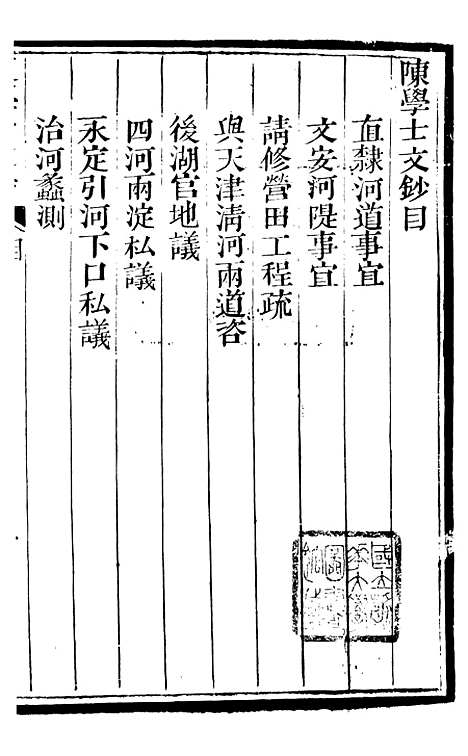 陳學士文鈔目
直隸河道事宜
文安河隄事宜
請修營田工程疏
與天津淸河兩道咨
後湖官地議
四河兩淀私議
永定引河下口私議
治河蠡測